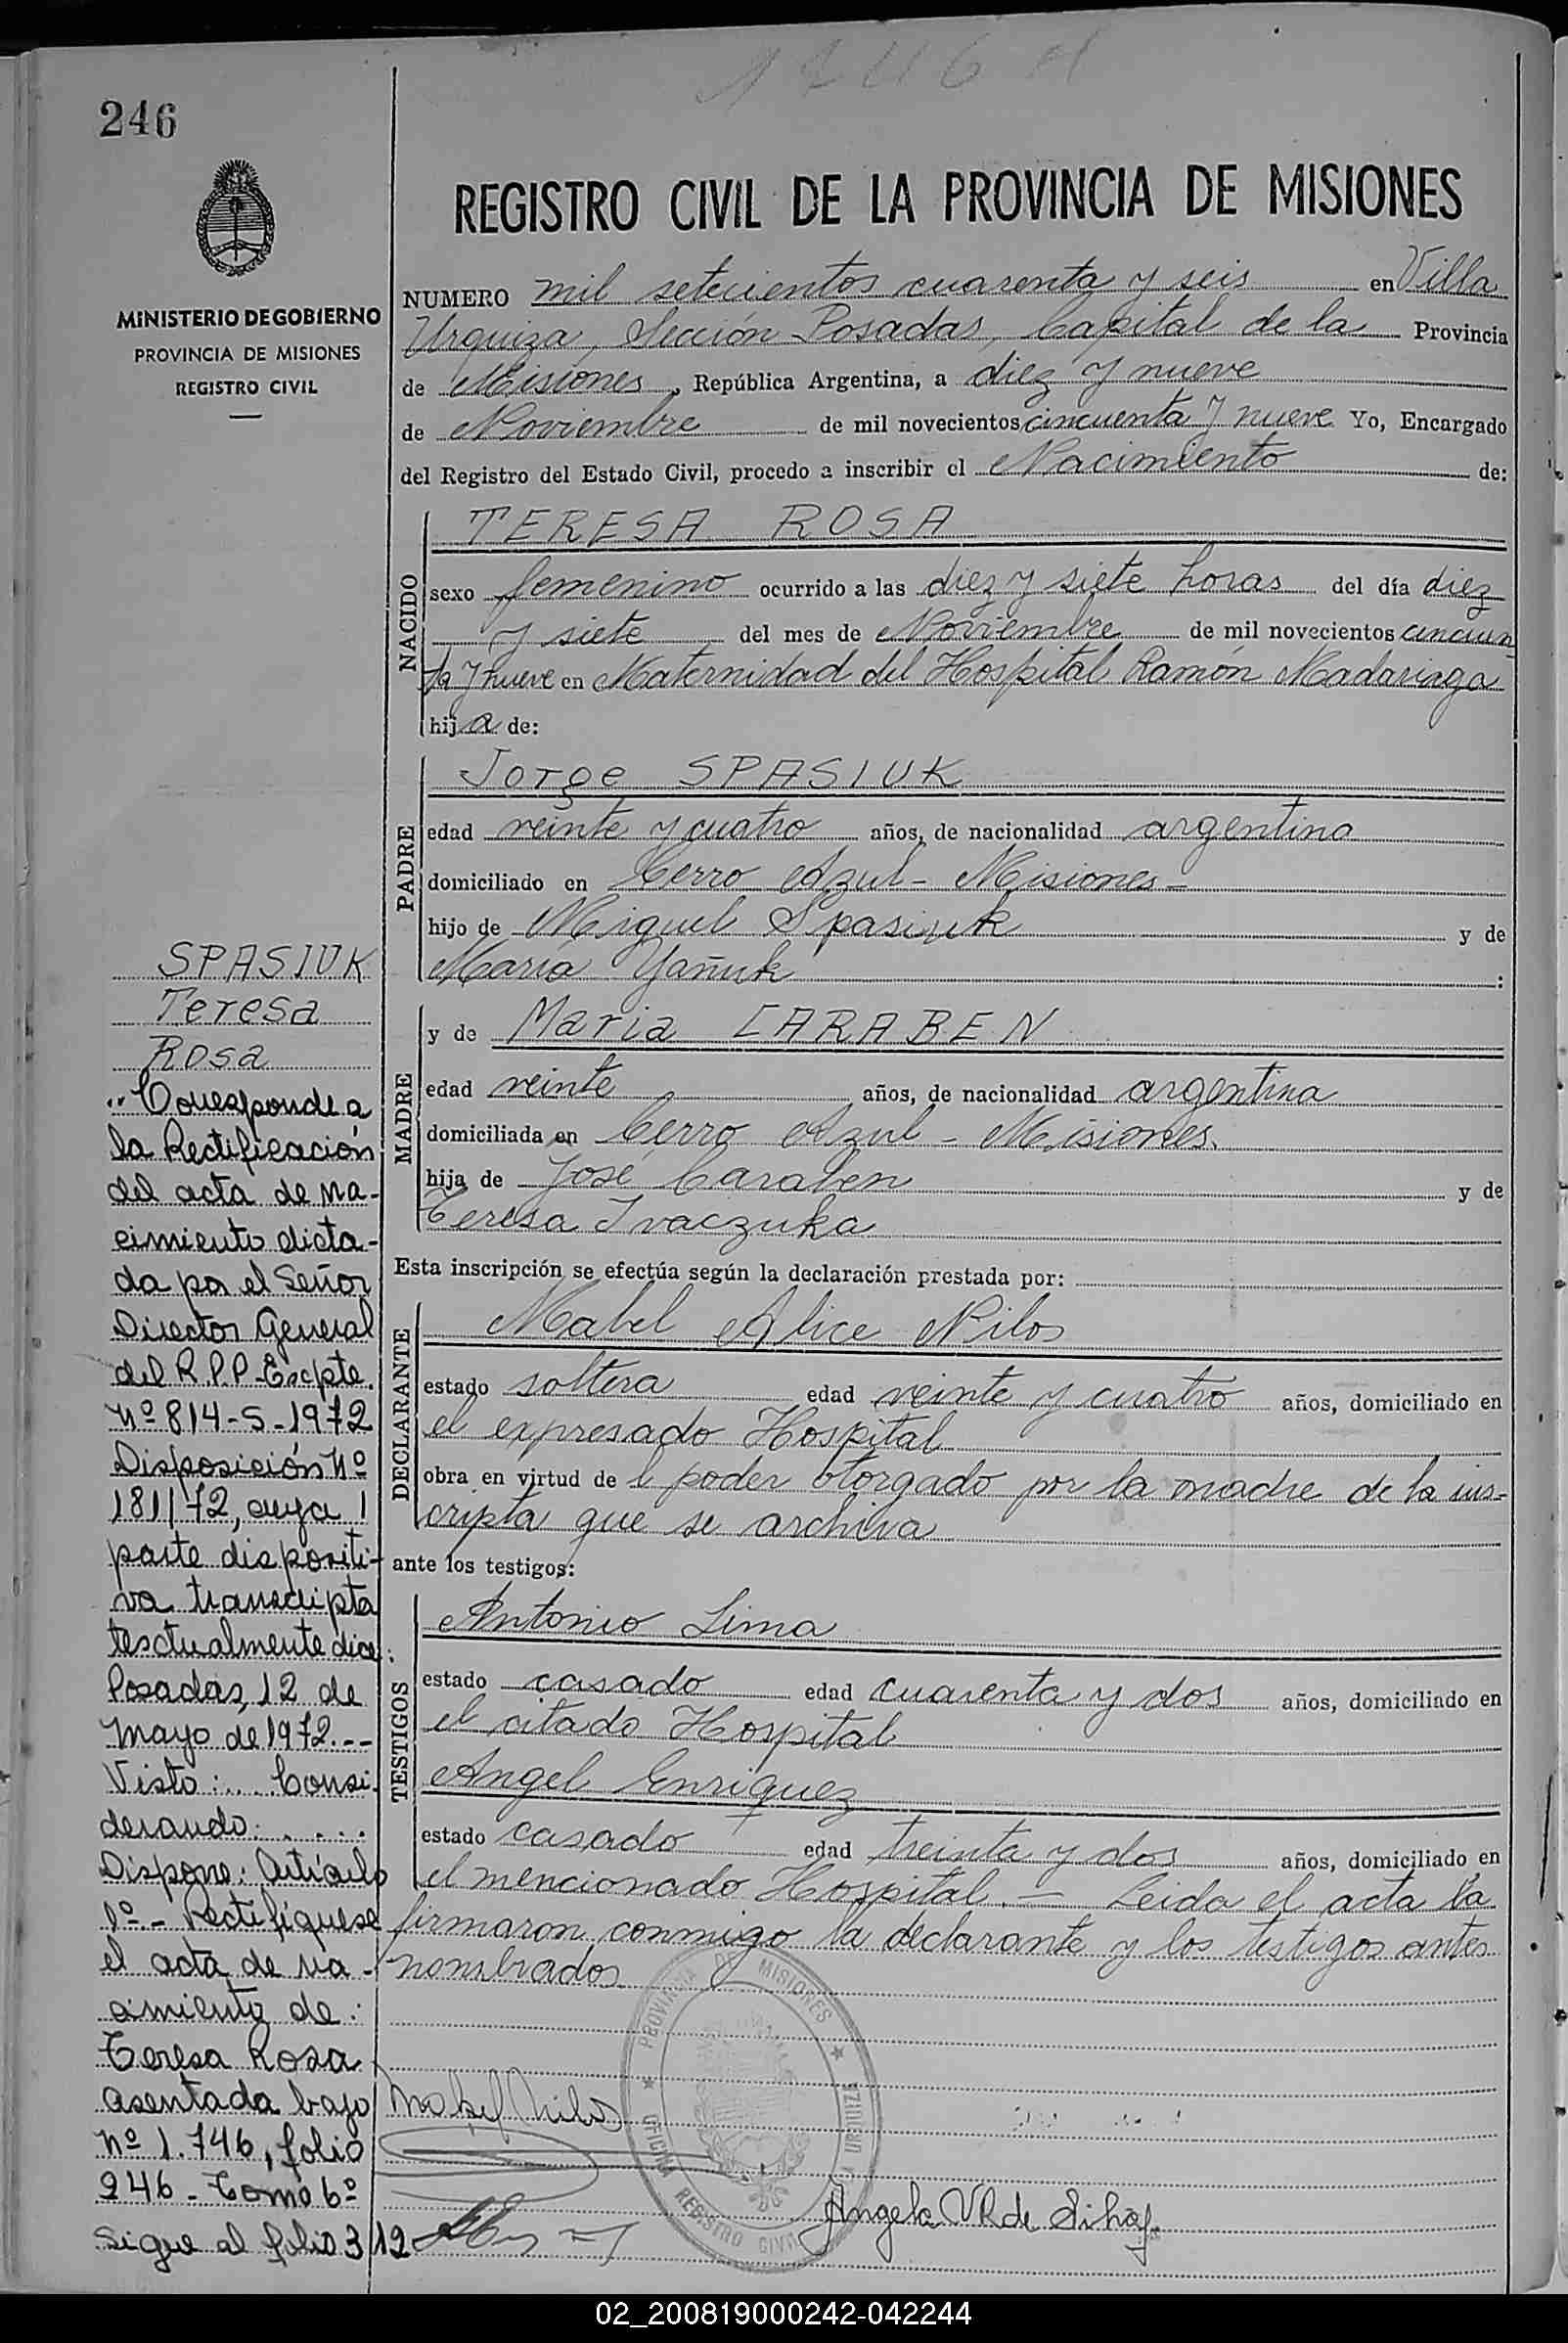 246
MINISTERIO DE GOBIERNO
PROVINCIA DE MISIONES
REGISTRO CIVIL
REGISTRO CIVIL DE LA PROVINCIA DE MISIONES
NUMERO mil setecientos cuarenta y seis en Villa
Urquiza, Sección Posadas, Capital de la Provincia
de Misiones, República Argentina, a diez y nueve
de Noviembre de mil novecientos cincuenta y nueve Yo, Encargado
del Registro del Estado Civil, procedo a inscribir el Nacimiento de:
NACIDO
TERESA ROSA
sexo femenino ocurrido a las diez y siete horas del día diez
y siete del mes de Noviembre de mil novecientos cincuen
ta y nueve en Maternidad del Hospital Ramón Madariaga
hija de:
PADRE
Jorge SPASIUK
edad veinte y cuatro años, de nacionalidad argentino
domiciliado en Cerro Azul - Misiones -
hijo de Miguel Spasiuk y de
María Yañuk :
MADRE
y de Maria CARABEN
edad veinte años, de nacionalidad argentina
domiciliada en Cerro Azul - Misiones.
hija de José Caraben y de
Teresa Ivaczuka
Esta inscripción se efectúa según la declaración prestada por:
DECLARANTE
Mabel Alice Nilos
estado soltera edad veinte y cuatro años, domiciliado en
el expresado Hospital
obra en virtud de l poder otorgado por la madre de la ins-
cripta que se archiva
ante los testigos:
TESTIGOS
Antonio Lima
estado casado edad cuarenta y dos años, domiciliado en
el citado Hospital
Angel Enriquez
estado casado edad treinta y dos años, domiciliado en
el mencionado Hospital. — Leida el acta la
firmaron conmigo la declarante y los testigos antes
nombrados
SPASIUK
Teresa
Rosa
"Corresponde a
la Rectificación
del acta de na-
cimiento dicta-
da por el Señor
Director General
del R.P.P-Excpte.
Nº 814-S-1972
Disposición Nº
181/72, cuya
parte dispositi-
va transcripta
textualmente dice:
Posadas, 12 de
Mayo de 1972.--
Visto:.... Consi-
derando:.....
Dispone: Artículo
1º - Rectifíquese
el acta de na-
cimiento de:
Teresa Rosa
asentada bajo
Nº 1.746, folio
246 - Tomo 6º
Sigue al folio 312
PROVINCIA DE MISIONES
OFICINA REGISTRO CIVIL
V. URQUIZA
Mabel Nilos
Angela V R de
02_200819000242-042244